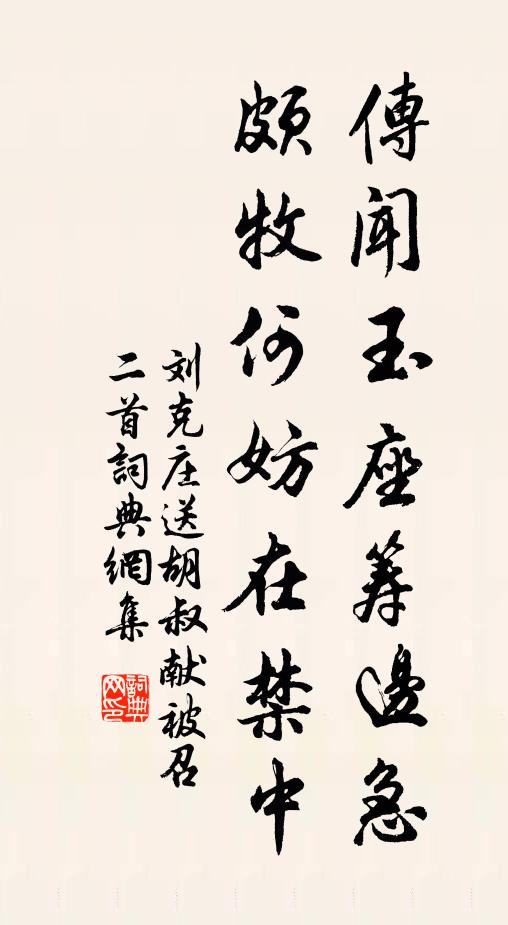 傳聞玉座筹邊急
頗牧何妨在禁中
刘克庄送胡叔献被召
二首詞典網集
詞典
网印